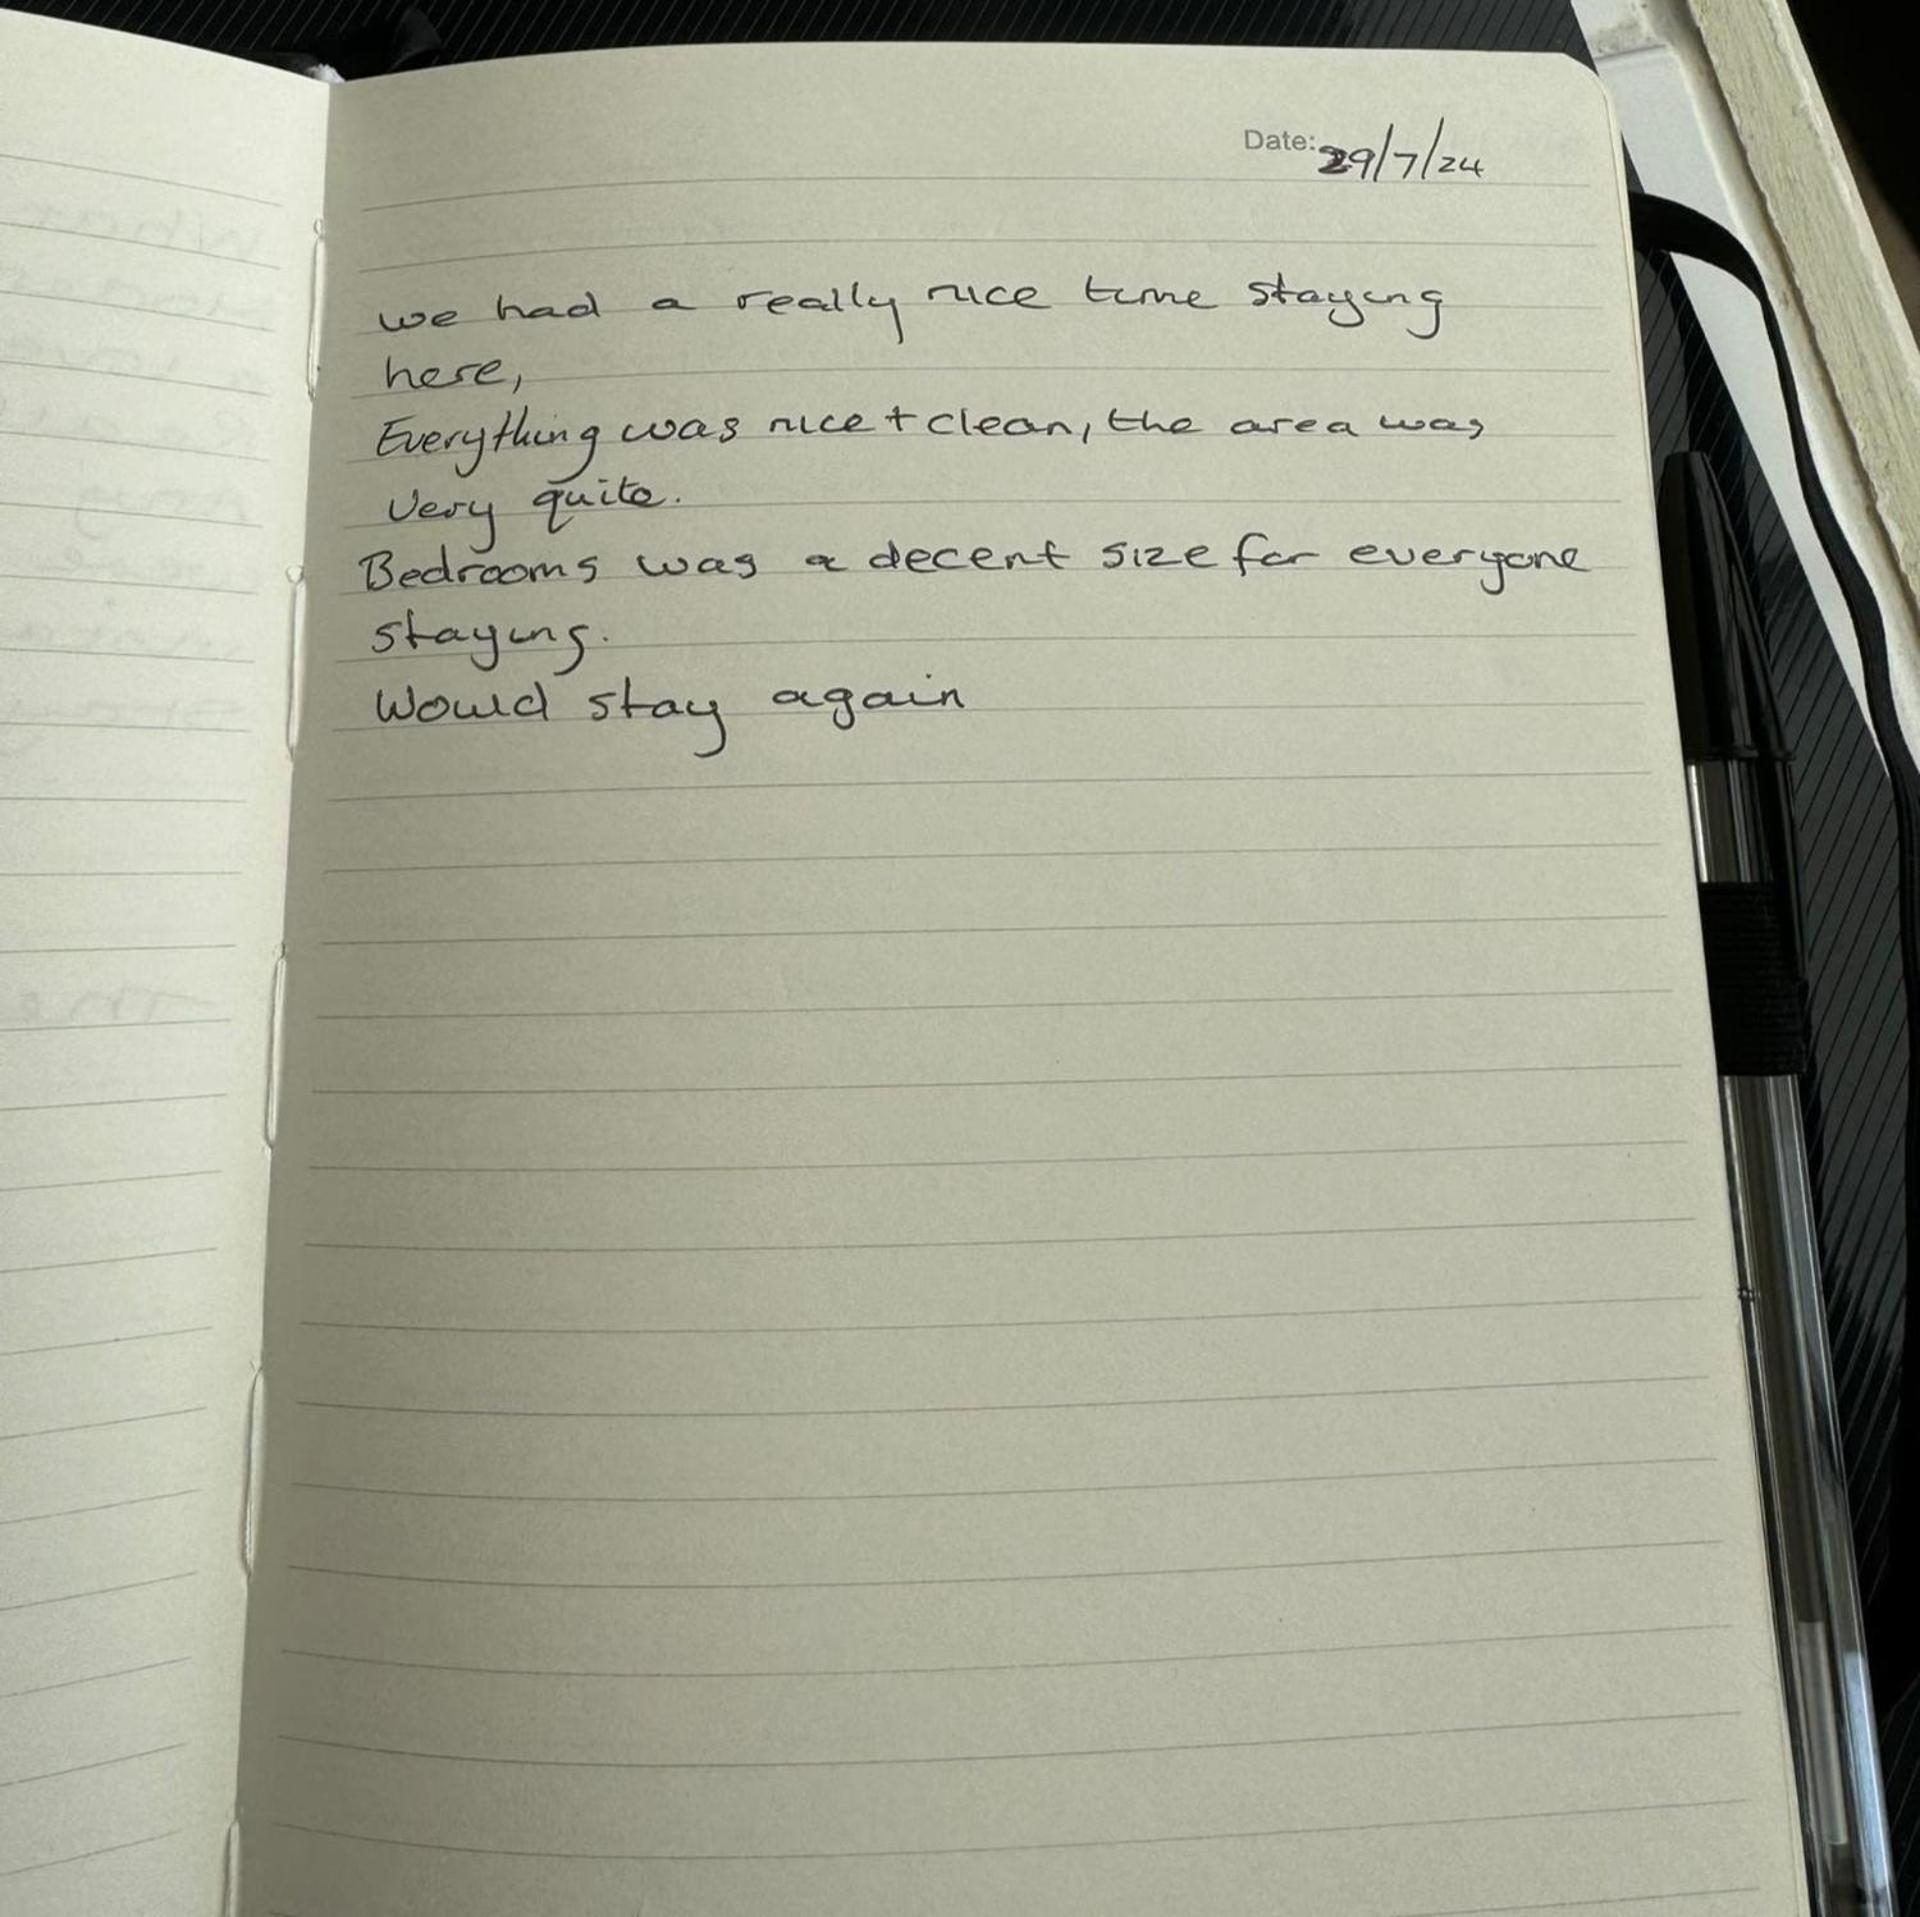 Date: 29/7/24
we had a really nice time staying
here,
Everything was nice + clean, the area was
very quite.
Bedrooms was a decent size for everyone
staying.
Would stay again